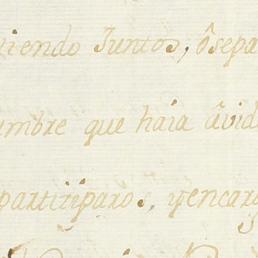 viendo Juntos, ôsepa
umbre que haia âvid
partiziparos, yencar